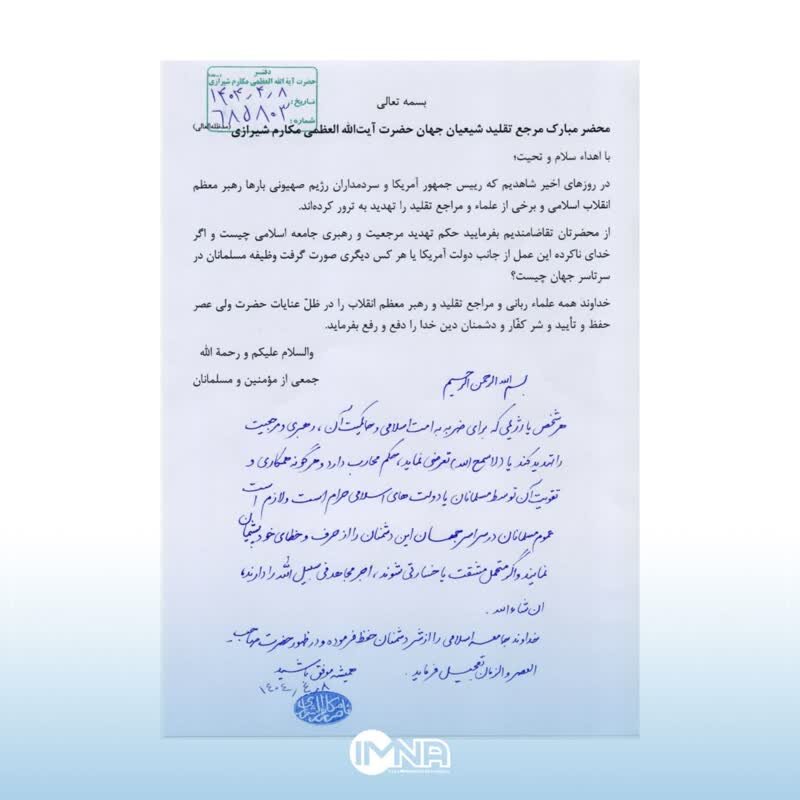 دفتر
حضرت آیة الله العظمی مکارم شیرازی
تاریخ: ۱۴۰۴/۴/۸
شماره: ۶۸۵۸۰۳
بسمه تعالی
محضر مبارک مرجع تقلید شیعیان جهان حضرت آیت‌الله العظمی مکارم شیرازی (مدظله‌العالی)
با اهداء سلام و تحیت؛
در روزهای اخیر شاهدیم که رییس جمهور آمریکا و سردمداران رژیم صهیونی بارها رهبر معظم
انقلاب اسلامی و برخی از علماء و مراجع تقلید را تهدید به ترور کرده‌اند.
از محضرتان تقاضامندیم بفرمایید حکم تهدید مرجعیت و رهبری جامعه اسلامی چیست و اگر
خدای ناکرده این عمل از جانب دولت آمریکا یا هر کس دیگری صورت گرفت وظیفه مسلمانان در
سرتاسر جهان چیست؟
خداوند همه علماء ربانی و مراجع تقلید و رهبر معظم انقلاب را در ظلّ عنایات حضرت ولی عصر
حفظ و تأیید و شر کفّار و دشمنان دین خدا را دفع و رفع بفرماید.
والسلام علیکم و رحمة الله
جمعی از مؤمنین و مسلمانان
بسم الله الرحمن الرحیم
هر شخص یا رژیمی که برای ضربه به امت اسلامی و حاکمیت آن، رهبری و مرجعیت
را تهدید کند یا (لا سمح الله) تعرضی نماید، حکم محارب دارد و هرگونه همکاری و
تقویت آن توسط مسلمانان یا دولت های اسلامی حرام است و لازم است
عموم مسلمانان در سراسر جهان این دشمنان را از حرف و خطای خود پشیمان
نمایند و اگر متحمل مشقت یا خسارتی شوند، اجر مجاهد فی سبیل الله را دارند،
ان شاء الله.
خداوند جامعه اسلامی را از شر دشمنان حفظ فرموده و در ظهور حضرت صاحب
العصر و الزمان تعجیل فرماید.
همیشه موفق باشید
۱۴۰۴/۴/۸
IMNA